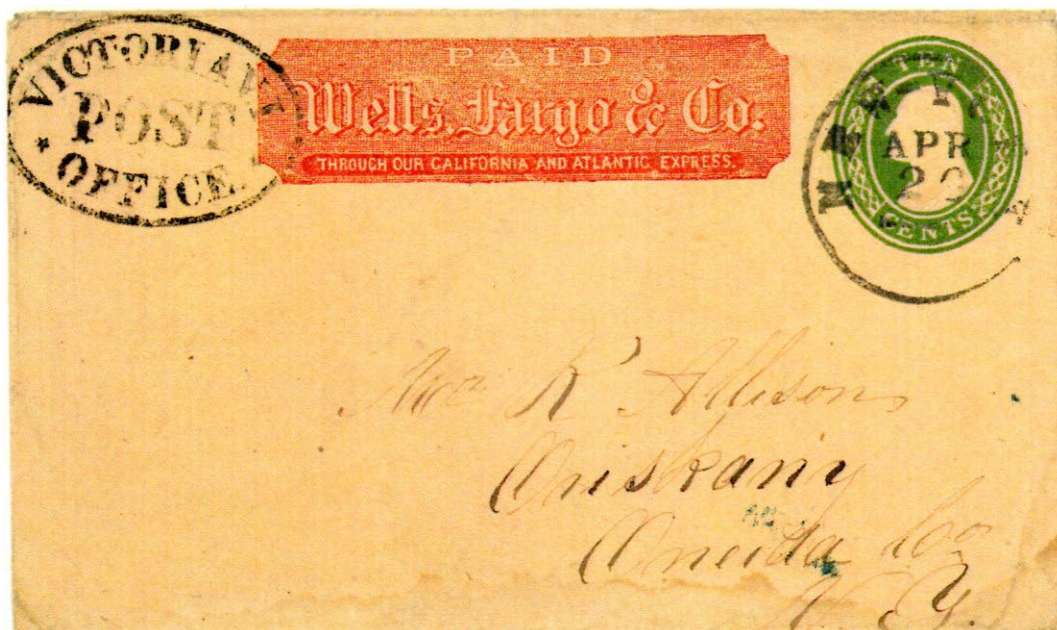 VICTORIA V.I.
POST
OFFICE.
PAID
Wells, Fargo & Co.
THROUGH OUR CALIFORNIA AND ATLANTIC EXPRESS.
TEN
CENTS
NEW YO
APR
20
R Allison
Oriskany
Oneida Co
N. Y.